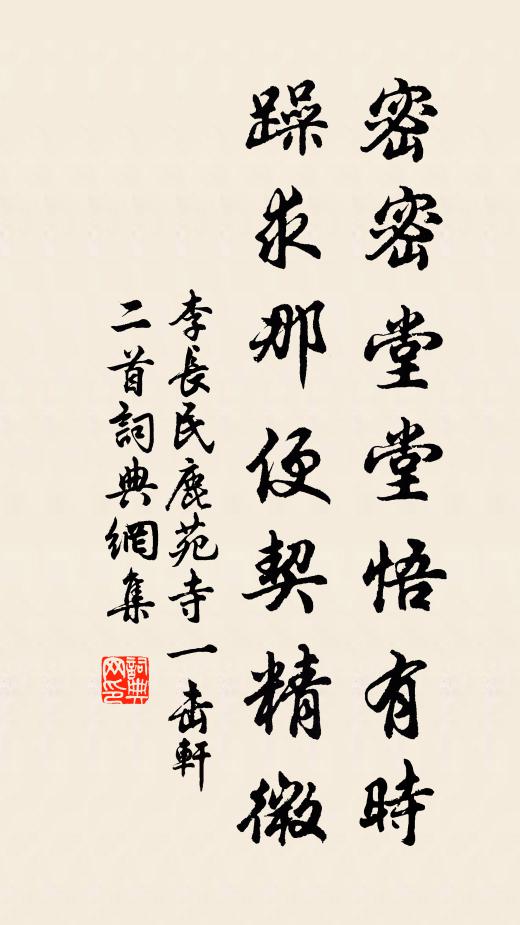 密密堂堂悟有時
躁求那便契精微
李長民鹿苑寺一击軒
二首詞典網集
詞典
网印